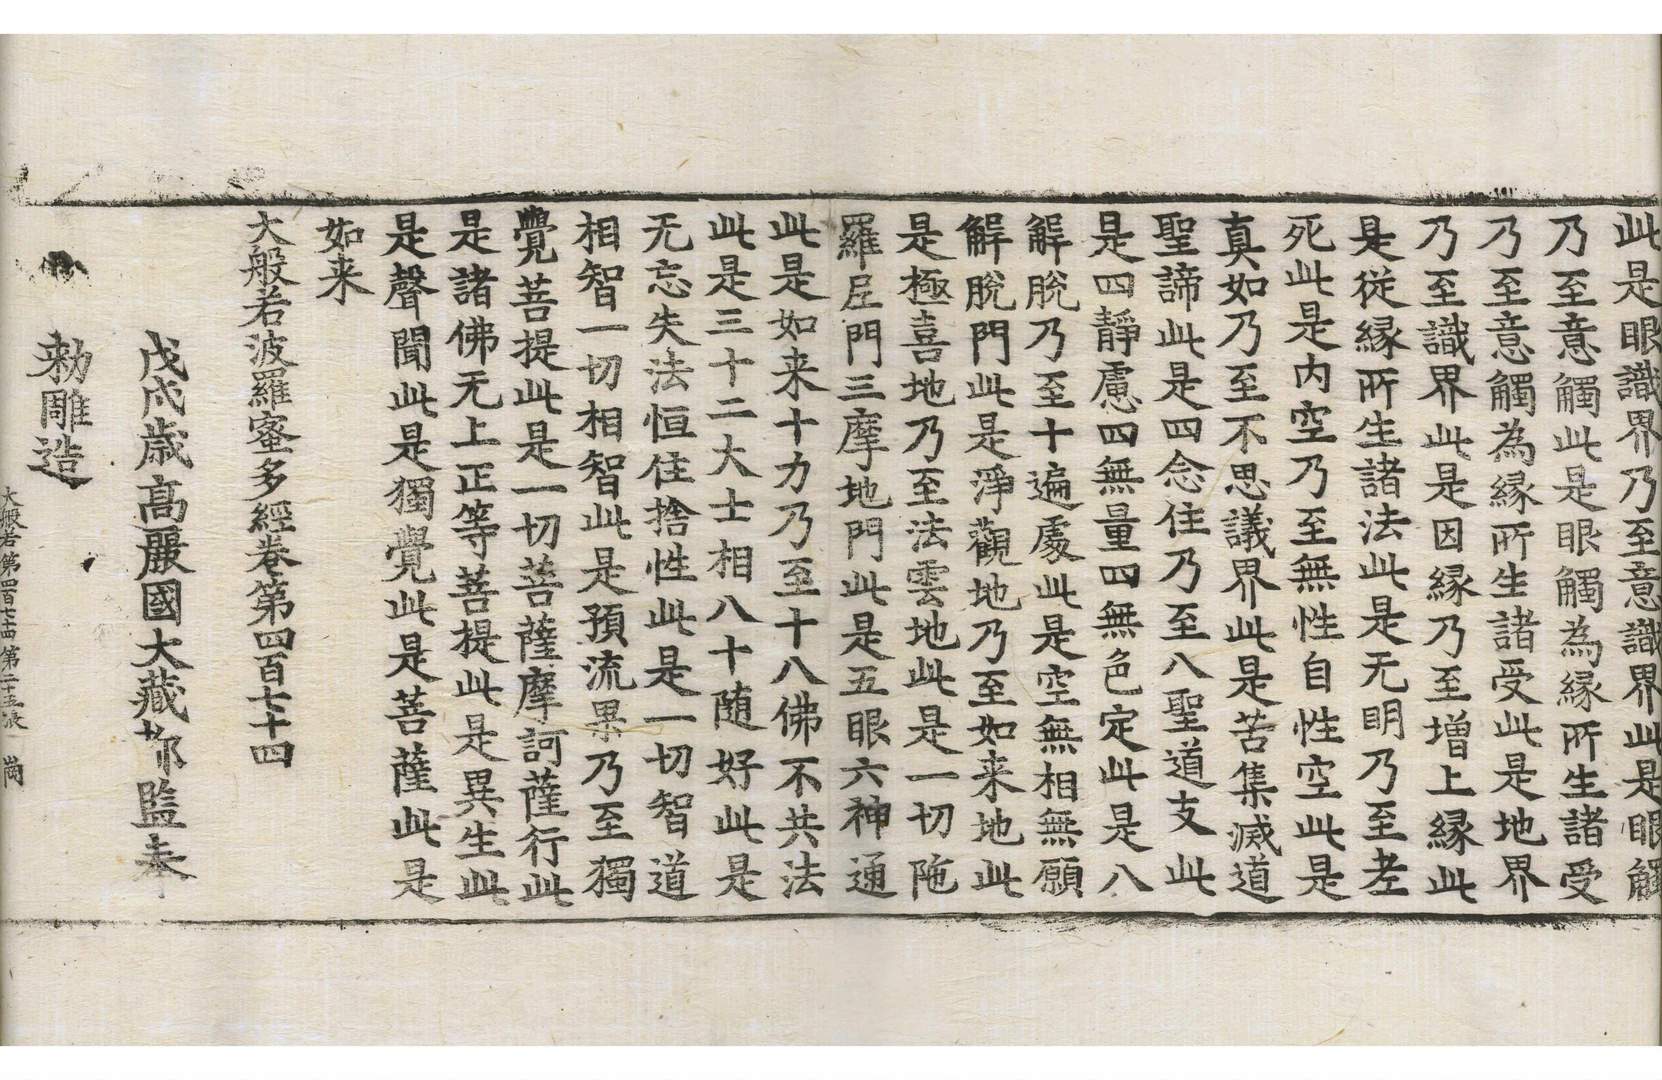 此是眼識界乃至意識界此是眼觸
乃至意觸此是眼觸為緣所生諸受
乃至意觸為緣所生諸受此是地界
乃至識界此是因緣乃至增上緣此
是從緣所生諸法此是无明乃至老
死此是内空乃至無性自性空此是
真如乃至不思議界此是苦集滅道
聖諦此是四念住乃至八聖道支此
是四靜慮四無量四無色定此是八
解脫乃至十遍處此是空無相無願
解脫門此是淨觀地乃至如来地此
是極喜地乃至法雲地此是一切陁
羅尼門三摩地門此是五眼六神通
此是如来十力乃至十八佛不共法
此是三十二大士相八十随好此是
无忘失法恒住捨性此是一切智道
相智一切相智此是預流果乃至獨
覺菩提此是一切菩薩摩訶薩行此
是諸佛无上正等菩提此是異生此
是聲聞此是獨覺此是菩薩此是
如来
大般若波羅蜜多經卷第四百七十四
戊戌歲高麗國大藏都監奉
勑雕造
大般若第四百七十四 第二十五張 崗